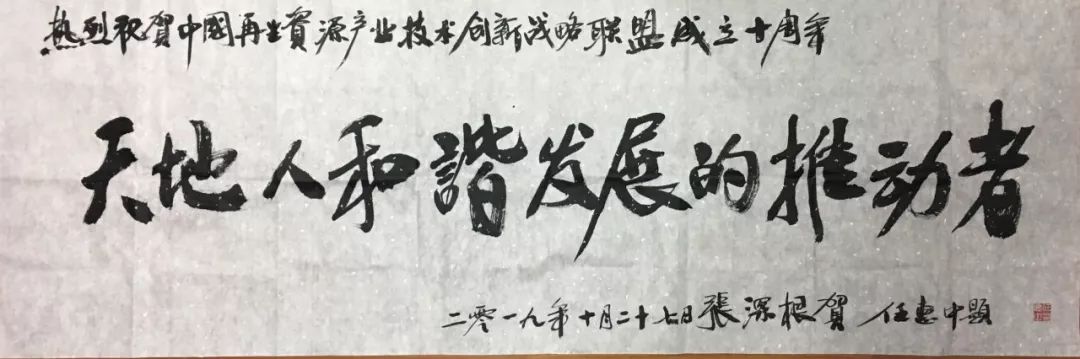 热烈祝賀中國再生資源产业技术创新战略联盟成立十周年
天地人和諧发展的推动者
二零一九年十月二十七日張深根賀 任惠中题